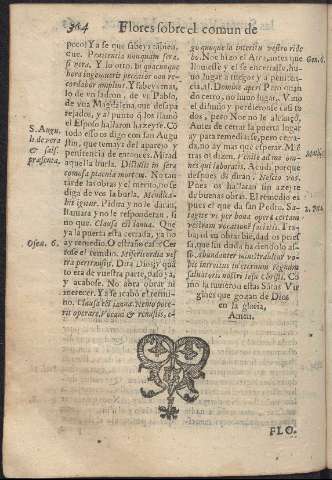 364 Flores sobre el comun de
peco! Ya se que sabeys
que. Penitencia nunquam sera,
si vera. Y lo otro. In quacunque
hora ingemuerit peccator non re-
cordabor amplius. Y sabeys mas,
lo de un ladron, de un Pablo,
de vna Magdalena, que desapa
rejados, y al punto q̃ los llamò
el Esposo hallaron hazeyte. Cõ
todo esso os digo con san Augu
stin, que temays del aparejo y
penitencia de entonces. Mirad
aquella burla. Distulit in sera
comissa placitia mortem. No tan
tarde las obras y el merito, no se
diga de vos la burla. Mendica-
bis ignar. Pidira y no le daràn,
llamara y no le responderan, si
no que. Clausa est ianua. Que
ya la puerta està cerrada, ya no
ay remedio. O estraño caso! Cer
fose el remdio. Misericordia ves
tra pertransijt. Dira Dios: y quã
to era de vuestra parte, passo ya,
y acabose. No abra obrar ni
merecer. Ya se acabò el termi-
no. Clausa est ianua. Nemo pote-
rit operare. Vocaui & renuistis, e-
S. Augu.
li. de vera
& falsa
pæniten.
Osea. 6.
go quoque in interitu vestro ride
bo. Noe hizo el Arca, antes que
llouiesse y el se encerrasse, hu-
uo lugar a ruegos y a peniten-
cia, &c. Domine aperi. Pero quan
do cerro, no huuo lugar, Vino
el diluuio y perdieronse casi to
dos. Pero Noe no le alcançò,
Antes de cerrar la puerta lugar
ay para remediarse, pero cerra-
da, no ay mas que esperar. Miẽ
tras os dizen. Venite ad me om-
nes qui laboratis. Acudi porque
despues os diran: Nescio vos.
Pues os hallaran sin azeyte
de buenas obras. El remedio es
pues el que da san Pedro. Sa-
tagite vt per bona opera certam
vestram vocationẽ faciatis. Tra-
bajad en obras buenas, &c.
sa, que sin duda haziendolo assi
se. Abundanter ministrabitur vo-
bis introitus in æternum regnum
saluatoris nostri Iesu Christi. Co
mo la tuuieron estas Santas Vir
gines que gozan de Dios
en su gloria,
Amen.
Gen. 6.
FLO.